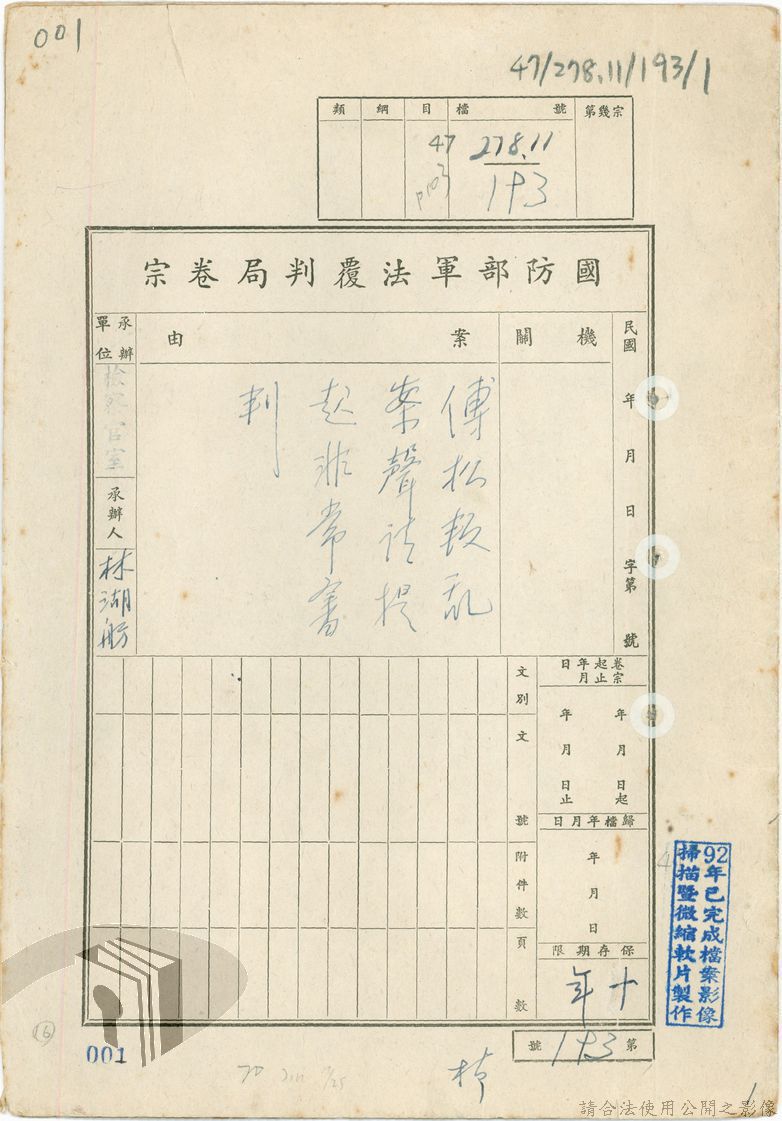 001
47/278.11/193/1
類 綱 目 檔號 第幾宗
47 278.11
193
國防部軍法覆判局卷宗
民國 年 月 日 字第 號
機關
案由
承辦單位
檢察官室
承辦人
林湖舫
傅松頼亂
案聲請提
起非常審
判
卷宗起止年月日
年 月 日起
年 月 日止
歸檔年月日
年 月 日
保存期限
十年
文別
文號
附件數
頁數
第 193 號
92年已完成檔案影像
掃描暨微縮軟片製作
16
001
請合法使用公開之影像